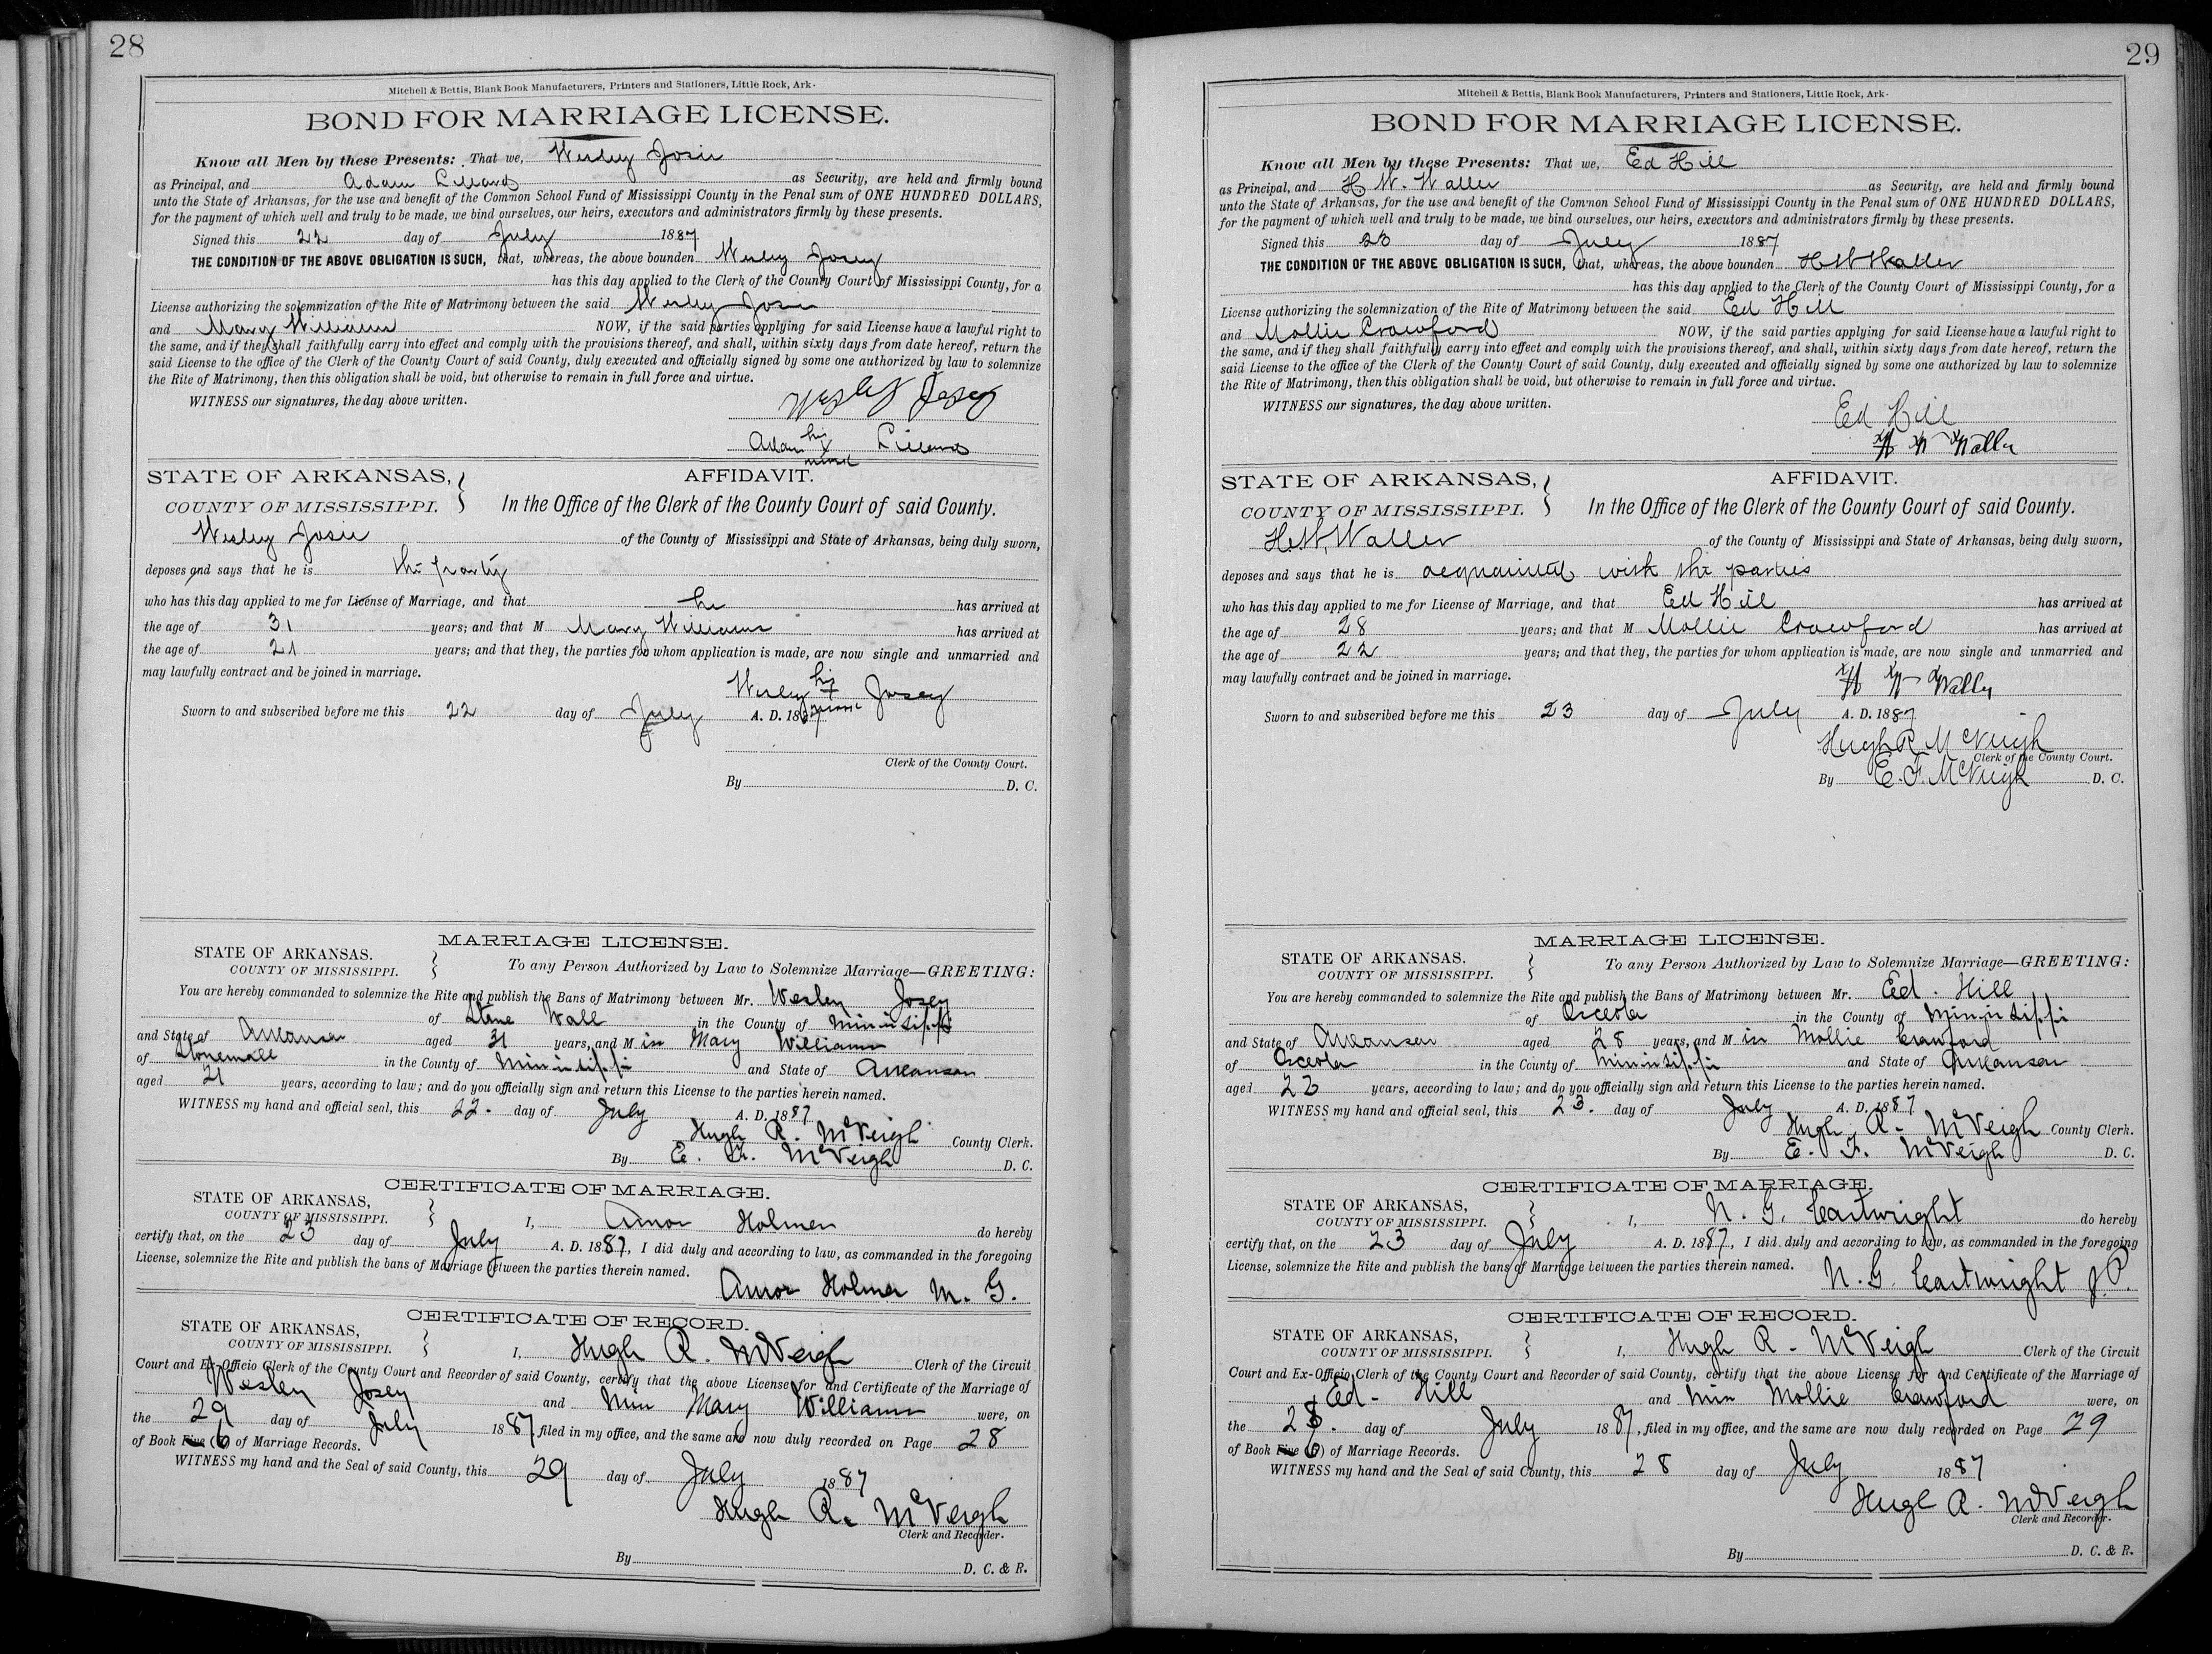 28
Mitchell & Bettis, Blank Book Manufacturers, Printers and Stationers, Little Rock, Ark.
BOND FOR MARRIAGE LICENSE.
Know all Men by these Presents: That we, Wesley Josie
as Principal, and Adam Lillard as Security, are held and firmly bound
unto the State of Arkansas, for the use and benefit of the Common School Fund of Mississippi County in the Penal sum of ONE HUNDRED DOLLARS,
for the payment of which well and truly to be made, we bind ourselves, our heirs, executors and administrators firmly by these presents.
Signed this 22 day of July 1887
THE CONDITION OF THE ABOVE OBLIGATION IS SUCH, that, whereas, the above bounden Wesley Josey
has this day applied to the Clerk of the County Court of Mississippi County, for a
License authorizing the solemnization of the Rite of Matrimony between the said Wesley Josie
and Mary Williams NOW, if the said parties applying for said License have a lawful right to
the same, and if they shall faithfully carry into effect and comply with the provisions thereof, and shall, within sixty days from date hereof, return the
said License to the office of the Clerk of the County Court of said County, duly executed and officially signed by some one authorized by law to solemnize
the Rite of Matrimony, then this obligation shall be void, but otherwise to remain in full force and virtue.
WITNESS our signatures, the day above written.
Wesley Josey
Adam his x mark Lillard
STATE OF ARKANSAS, AFFIDAVIT.
COUNTY OF MISSISSIPPI. In the Office of the Clerk of the County Court of said County.
Wesley Josie of the County of Mississippi and State of Arkansas, being duly sworn,
deposes and says that he is the party
who has this day applied to me for License of Marriage, and that he has arrived at
the age of 31 years; and that M Mary Williams has arrived at
the age of 21 years; and that they, the parties for whom application is made, are now single and unmarried and
may lawfully contract and be joined in marriage.
Wesley his x mark Josey
Sworn to and subscribed before me this 22 day of July A. D. 1887
Clerk of the County Court.
By D. C.
MARRIAGE LICENSE.
STATE OF ARKANSAS.
COUNTY OF MISSISSIPPI. To any Person Authorized by Law to Solemnize Marriage—GREETING:
You are hereby commanded to solemnize the Rite and publish the Bans of Matrimony between Mr. Wesley Josey
of Stone Wall in the County of Mississippi
and State of Arkansas aged 31 years, and M iss Mary Williams
of Stonewall in the County of Mississippi and State of Arkansas
aged 21 years, according to law; and do you officially sign and return this License to the parties herein named.
WITNESS my hand and official seal, this 22. day of July A. D. 1887.
Hugh R. McVeigh County Clerk.
By E. F. McVeigh D. C.
CERTIFICATE OF MARRIAGE.
STATE OF ARKANSAS,
COUNTY OF MISSISSIPPI. I, Amos Holmes do hereby
certify that, on the 23 day of July A. D. 1887, I did duly and according to law, as commanded in the foregoing
License, solemnize the Rite and publish the bans of Marriage between the parties therein named.
Amos Holmes M. G.
CERTIFICATE OF RECORD.
STATE OF ARKANSAS,
COUNTY OF MISSISSIPPI. I, Hugh R. McVeigh Clerk of the Circuit
Court and Ex-Officio Clerk of the County Court and Recorder of said County, certify that the above License for and Certificate of the Marriage of
Wesley Josey and Miss Mary Williams were, on
the 29 day of July 1887, filed in my office, and the same are now duly recorded on Page 28
of Book Five (6 of Marriage Records.
WITNESS my hand and the Seal of said County, this 29 day of July 1887
Hugh R. McVeigh
Clerk and Recorder.
By D. C. & R.
29
Mitchell & Bettis, Blank Book Manufacturers, Printers and Stationers, Little Rock, Ark.
BOND FOR MARRIAGE LICENSE.
Know all Men by these Presents: That we, Ed Hill
as Principal, and H. W. Waller as Security, are held and firmly bound
unto the State of Arkansas, for the use and benefit of the Common School Fund of Mississippi County in the Penal sum of ONE HUNDRED DOLLARS,
for the payment of which well and truly to be made, we bind ourselves, our heirs, executors and administrators firmly by these presents.
Signed this 23 day of July 1887
THE CONDITION OF THE ABOVE OBLIGATION IS SUCH, that, whereas, the above bounden H W Waller
has this day applied to the Clerk of the County Court of Mississippi County, for a
License authorizing the solemnization of the Rite of Matrimony between the said Ed Hill
and Mollie Crawford NOW, if the said parties applying for said License have a lawful right to
the same, and if they shall faithfully carry into effect and comply with the provisions thereof, and shall, within sixty days from date hereof, return the
said License to the office of the Clerk of the County Court of said County, duly executed and officially signed by some one authorized by law to solemnize
the Rite of Matrimony, then this obligation shall be void, but otherwise to remain in full force and virtue.
WITNESS our signatures, the day above written.
Ed Hill
H W Waller
STATE OF ARKANSAS, AFFIDAVIT.
COUNTY OF MISSISSIPPI. In the Office of the Clerk of the County Court of said County.
H. W. Waller of the County of Mississippi and State of Arkansas, being duly sworn,
deposes and says that he is acquainted with the parties
who has this day applied to me for License of Marriage, and that Ed Hill has arrived at
the age of 28 years; and that M Mollie Crawford has arrived at
the age of 22 years; and that they, the parties for whom application is made, are now single and unmarried and
may lawfully contract and be joined in marriage.
H W Waller
Sworn to and subscribed before me this 23 day of July A. D. 1887
Hugh R McVeigh
Clerk of the County Court.
By E. F. McVeigh D. C.
MARRIAGE LICENSE.
STATE OF ARKANSAS.
COUNTY OF MISSISSIPPI. To any Person Authorized by Law to Solemnize Marriage—GREETING:
You are hereby commanded to solemnize the Rite and publish the Bans of Matrimony between Mr. Ed. Hill
of Osceola in the County of Mississippi
and State of Arkansas aged 28 years, and M iss Mollie Crawford
of Osceola in the County of Mississippi and State of Arkansas
aged 22 years, according to law; and do you officially sign and return this License to the parties herein named.
WITNESS my hand and official seal, this 23. day of July A. D. 1887
Hugh R. McVeigh County Clerk.
By E. F. McVeigh D. C.
CERTIFICATE OF MARRIAGE.
STATE OF ARKANSAS,
COUNTY OF MISSISSIPPI. I, N. G. Cartwright do hereby
certify that, on the 23 day of July A. D. 1887, I did duly and according to law, as commanded in the foregoing
License, solemnize the Rite and publish the bans of Marriage between the parties therein named.
N. G. Cartwright J. P.
CERTIFICATE OF RECORD.
STATE OF ARKANSAS,
COUNTY OF MISSISSIPPI. I, Hugh R. McVeigh Clerk of the Circuit
Court and Ex-Officio Clerk of the County Court and Recorder of said County, certify that the above License for and Certificate of the Marriage of
Ed. Hill and Miss Mollie Crawford were, on
the 28. day of July 1887, filed in my office, and the same are now duly recorded on Page 29
of Book Five (6) of Marriage Records.
WITNESS my hand and the Seal of said County, this 28 day of July 1887
Hugh R. McVeigh
Clerk and Recorder.
By D. C. & R.